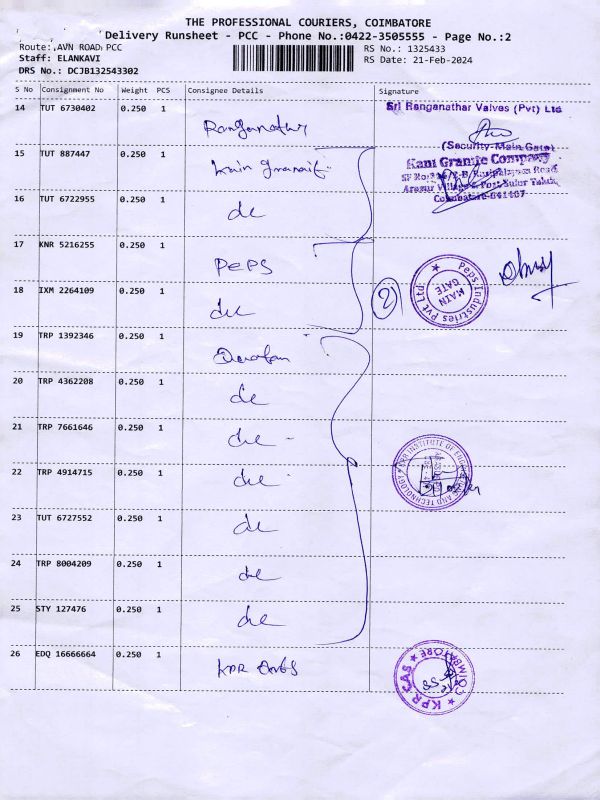 THE PROFESSIONAL COURIERS, COIMBATORE
Delivery Runsheet - PCC - Phone No.:0422-3505555 - Page No.:2
Route: AVN ROAD PCC
RS No.: 1325433
Staff: ELANKAVI
RS Date: 21-Feb-2024
DRS No.: DCJB132543302
S No Consignment No Weight PCS Consignee Details Signature
14 TUT 6730402 0.250 1 Sri Ranganathar Valves (Pvt) Ltd
(Security-Main Gate)
15 TUT 887447 0.250 1 Kani Granite Company
Coimbatore-641407
16 TUT 6722955 0.250 1 do
17 KNR 5216255 0.250 1 PEPS
Peps Industries Pvt Ltd.
MAIN GATE
18 IXM 2264109 0.250 1 do
2
19 TRP 1392346 0.250 1
20 TRP 4362208 0.250 1 do
21 TRP 7661646 0.250 1 do
22 TRP 4914715 0.250 1 do
KPR INSTITUTE OF ENGINEERING AND TECHNOLOGY
23 TUT 6727552 0.250 1 do
24 TRP 8004209 0.250 1 do
25 STY 127476 0.250 1 do
26 EDQ 16666664 0.250 1 KPR
KPR CAS COIMBATORE